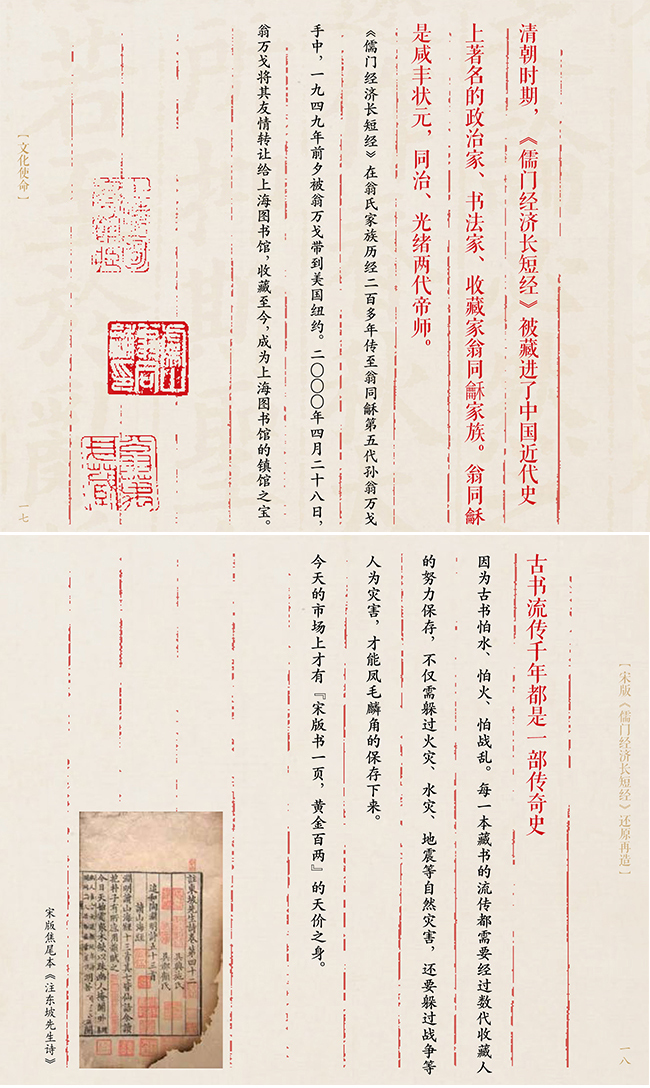 清朝时期，《儒门经济长短经》被藏进了中国近代史
上著名的政治家、书法家、收藏家翁同龢家族。翁同龢
是咸丰状元，同治、光绪两代帝师。
《儒门经济长短经》在翁氏家族历经二百多年传至翁同龢第五代孙翁万戈
手中，一九四九年前夕被翁万戈带到美国纽约。二〇〇〇年四月二十八日，
翁万戈将其友情转让给上海图书馆，收藏至今，成为上海图书馆的镇馆之宝。
［文化使命］
一七
［宋版《儒门经济长短经》还原再造］
一八
古书流传千年都是一部传奇史
因为古书怕水、怕火、怕战乱。每一本藏书的流传都需要经过数代收藏人
的努力保存，不仅需躲过火灾、水灾、地震等自然灾害，还要躲过战争等
人为灾害，才能凤毛麟角的保存下来。
今天的市场上才有『宋版书一页，黄金百两』的天价之身。
註東坡先生詩卷第四十二
吳興施氏
吳郡顧氏
追和陶淵明詩五十三首
讀山海經
宋版焦尾本《注东坡先生诗》